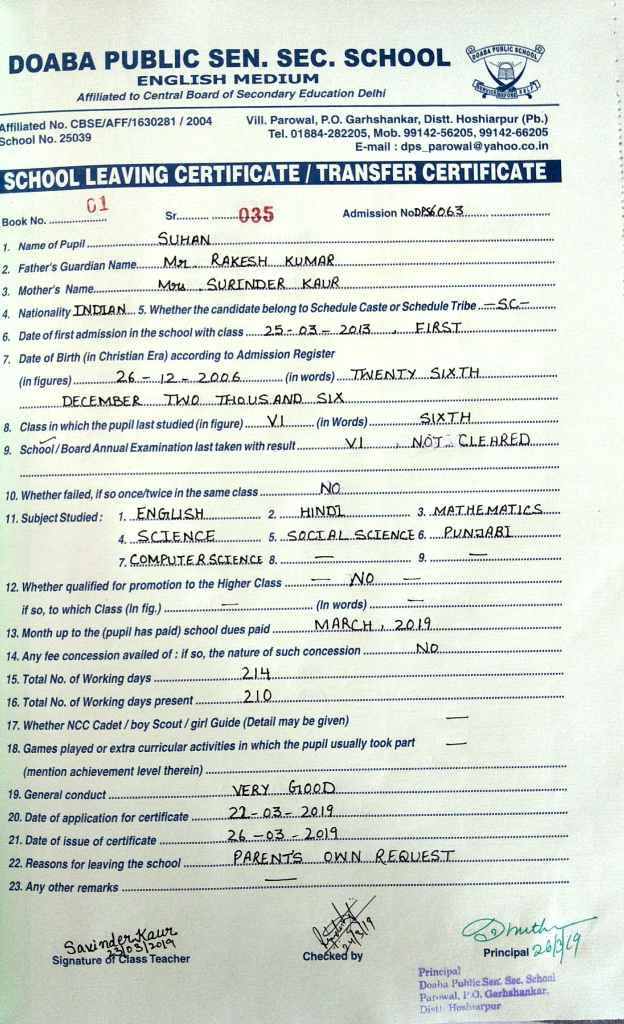 DOABA PUBLIC SEN. SEC. SCHOOL
ENGLISH MEDIUM
Affiliated to Central Board of Secondary Education Delhi
DOABA PUBLIC SCHOOL
Affiliated No. CBSE/AFF/1630281 / 2004
School No. 25039
Vill. Parowal, P.O. Garhshankar, Distt. Hoshiarpur (Pb.)
Tel. 01884-282205, Mob. 99142-56205, 99142-66205
E-mail : dps_parowal@yahoo.co.in
SCHOOL LEAVING CERTIFICATE / TRANSFER CERTIFICATE
Book No. 01 Sr. 035 Admission No DPS6063
1. Name of Pupil SUHAN
2. Father's Guardian Name Mr. RAKESH KUMAR
3. Mother's Name Mrs. SURINDER KAUR
4. Nationality INDIAN 5. Whether the candidate belong to Schedule Caste or Schedule Tribe —SC—
6. Date of first admission in the school with class 25-03-2013, FIRST
7. Date of Birth (in Christian Era) according to Admission Register
(in figures) 26-12-2006 (in words) TWENTY SIXTH
DECEMBER TWO THOUSAND SIX
8. Class in which the pupil last studied (in figure) VI (in Words) SIXTH
9. School / Board Annual Examination last taken with result VI, NOT CLEARED
10. Whether failed, if so once/twice in the same class NO
11. Subject Studied : 1. ENGLISH 2. HINDI 3. MATHEMATICS
4. SCIENCE 5. SOCIAL SCIENCE 6. PUNJABI
7. COMPUTER SCIENCE 8. — 9. —
12. Whether qualified for promotion to the Higher Class — NO —
if so, to which Class (In fig.) — (In words) —
13. Month up to the (pupil has paid) school dues paid MARCH, 2019
14. Any fee concession availed of : if so, the nature of such concession No
15. Total No. of Working days 214
16. Total No. of Working days present 210
17. Whether NCC Cadet / boy Scout / girl Guide (Detail may be given) —
18. Games played or extra curricular activities in which the pupil usually took part —
(mention achievement level therein)
19. General conduct VERY GOOD
20. Date of application for certificate 22-03-2019
21. Date of issue of certificate 26-03-2019
22. Reasons for leaving the school PARENT'S OWN REQUEST
23. Any other remarks —
Savinder Kaur
23/03/2019
Signature of Class Teacher
24/3/19
Checked by
Principal 26/3/19
Principal
Doaba Public Sen. Sec. School
Parowal, P.O. Garhshankar,
Distt. Hoshiarpur